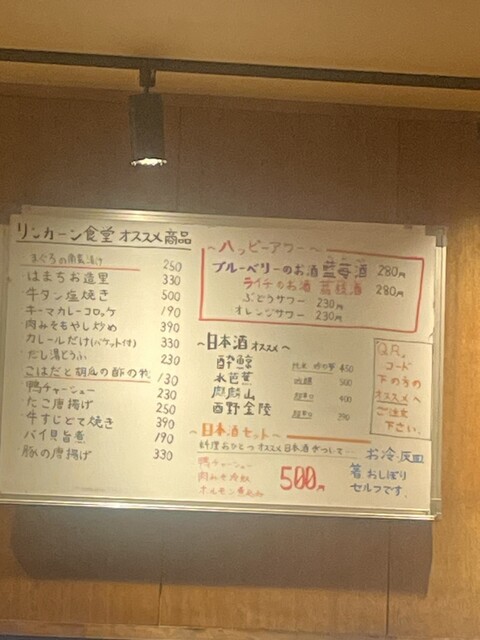 リンカーン食堂 オススメ商品
まぐろの 漬け 250
はまちお造里 330
牛タン塩焼き 500
キーマカレーコロッケ 190
肉みそもやし炒め 390
カレールだけ(バケット付) 330
だし湯どうふ 230
こはだと胡瓜の酢の物 130
鴨チャーシュー 230
たこ唐揚げ 250
牛すじとて焼き 390
バイ貝旨煮 190
豚の唐揚げ 330
〜ハッピーアワー〜
ブルーベリーのお酒 藍苺酒 280円
ライチのお酒 茘枝酒 280円
ぶどうサワー 230円
オレンジサワー 230円
〜日本酒 オススメ〜
酔鯨 純米 吟の夢 450
水芭蕉 吟醸 500
麒麟山 超辛口 400
西野金陵 超辛口 390
〜日本酒セット〜
料理おひとつ オススメ日本酒がついて…
鴨チャーシュー
肉みそ冷奴
ホルモン煮込み
500円
QR.
コード
下の方の
オススメへ
ご注文
下さい.
お冷・灰皿
箸 おしぼり
セルフです.